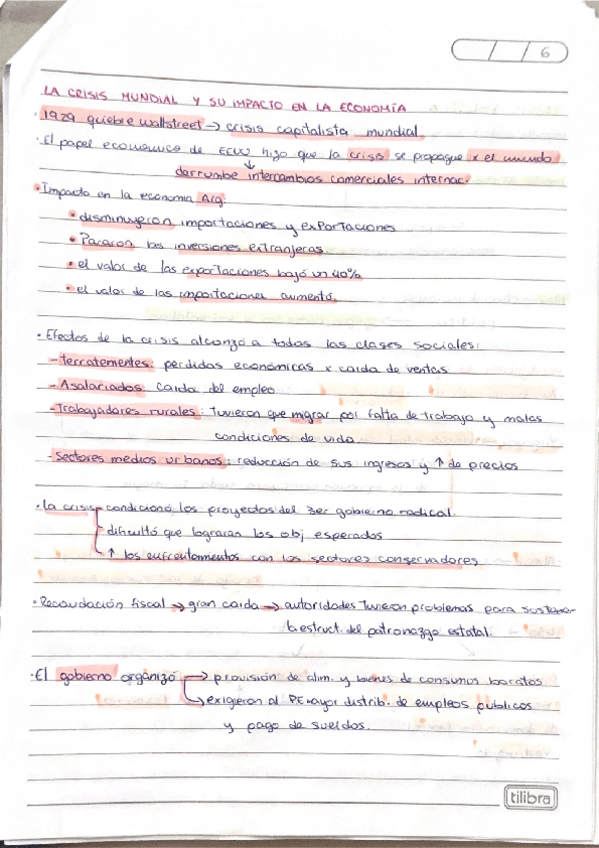 6
LA CRISIS MUNDIAL Y SU IMPACTO EN LA ECONOMÍA
· 1929 quiebre wallstreet → crisis capitalista mundial
· El papel economico de EEUU hizo que la crisis se propague x el mundo
↓
derrumbe intercambios comerciales internac.
• Impacto en la economia Arg:
• disminuyeron importaciones y exportaciones
• Pararon las inversiones extranjeras
• el valor de las exportaciones bajó un 40%
• el valor de las importaciones aumentó.
· Efectos de la crisis alcanzó a todas las clases sociales:
- terratenientes: perdidas económicas x caida de ventas
- Asalariados: Caida del empleo
- Trabajadores rurales: tuvieron que migrar por falta de trabajo y malas
condiciones de vida
- sectores medios urbanos: reducción de sus ingresos y ↑ de precios
· la crisis - condicionó los proyectos del 3er gobierno radical.
- dificultó que lograran los obj esperados
↑ los enfrentamientos con los sectores conservadores
· Recaudación fiscal → gran caida → autoridades tuvieron problemas para sostener
la estruct. del patronazgo estatal.
· El gobierno organizó → provisión de alim. y bienes de consumos baratos
→ exigieron al PE mayor distrib. de empleos publicos
y pago de sueldos.
tilibra